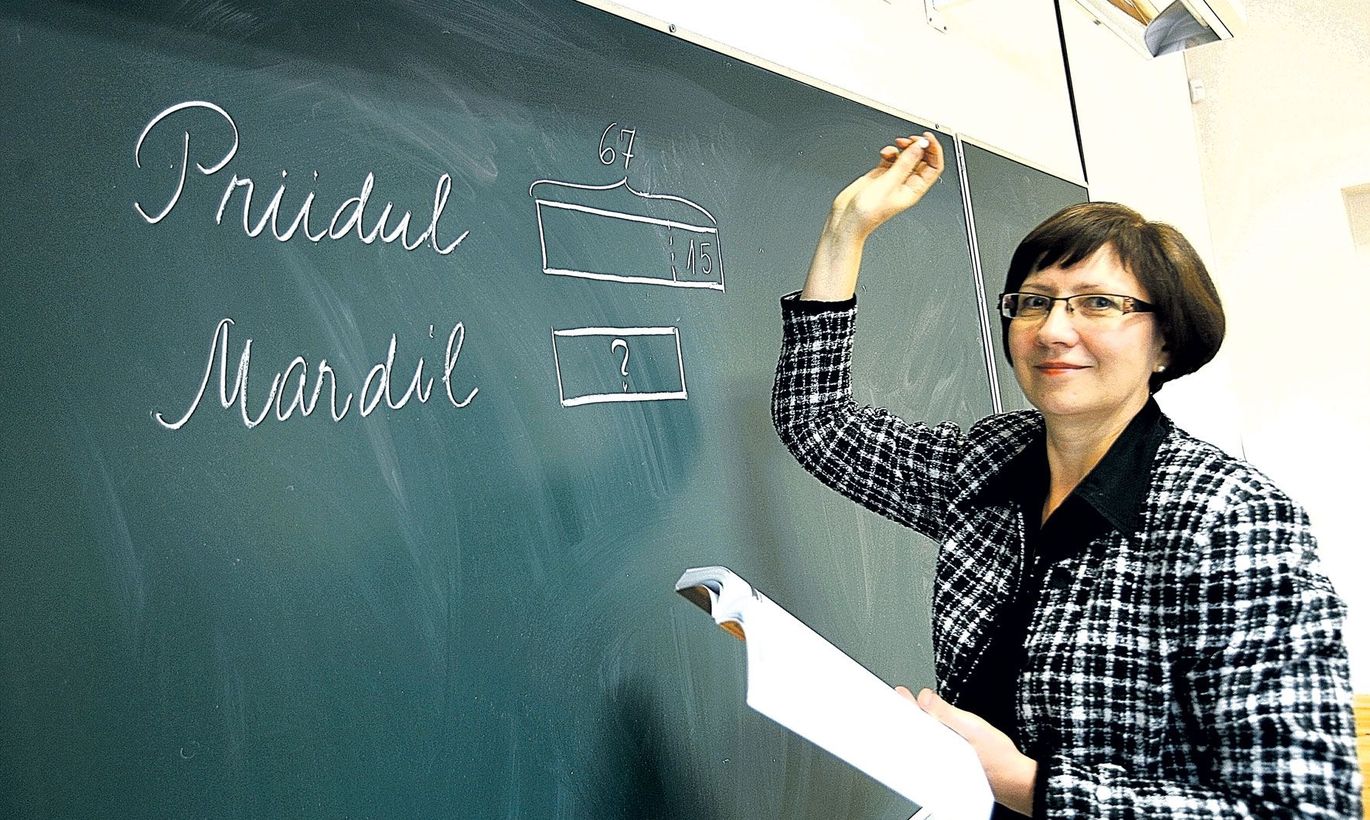 Priidul
67
15
Mardil
?